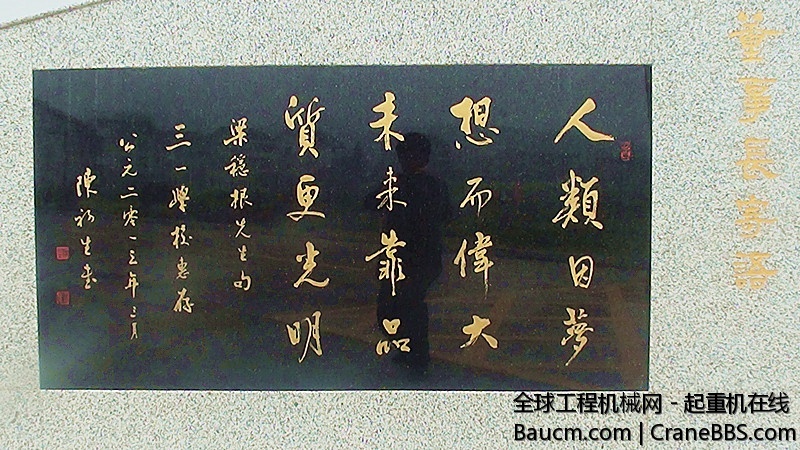 董事長寄語
人類因夢
想而偉大
未来靠品
質更光明
梁穩根先生句
三一學校惠存
公元二零一三年三月
陳初生書
全球工程机械网 - 起重机在线
Baucm.com | CraneBBS.com